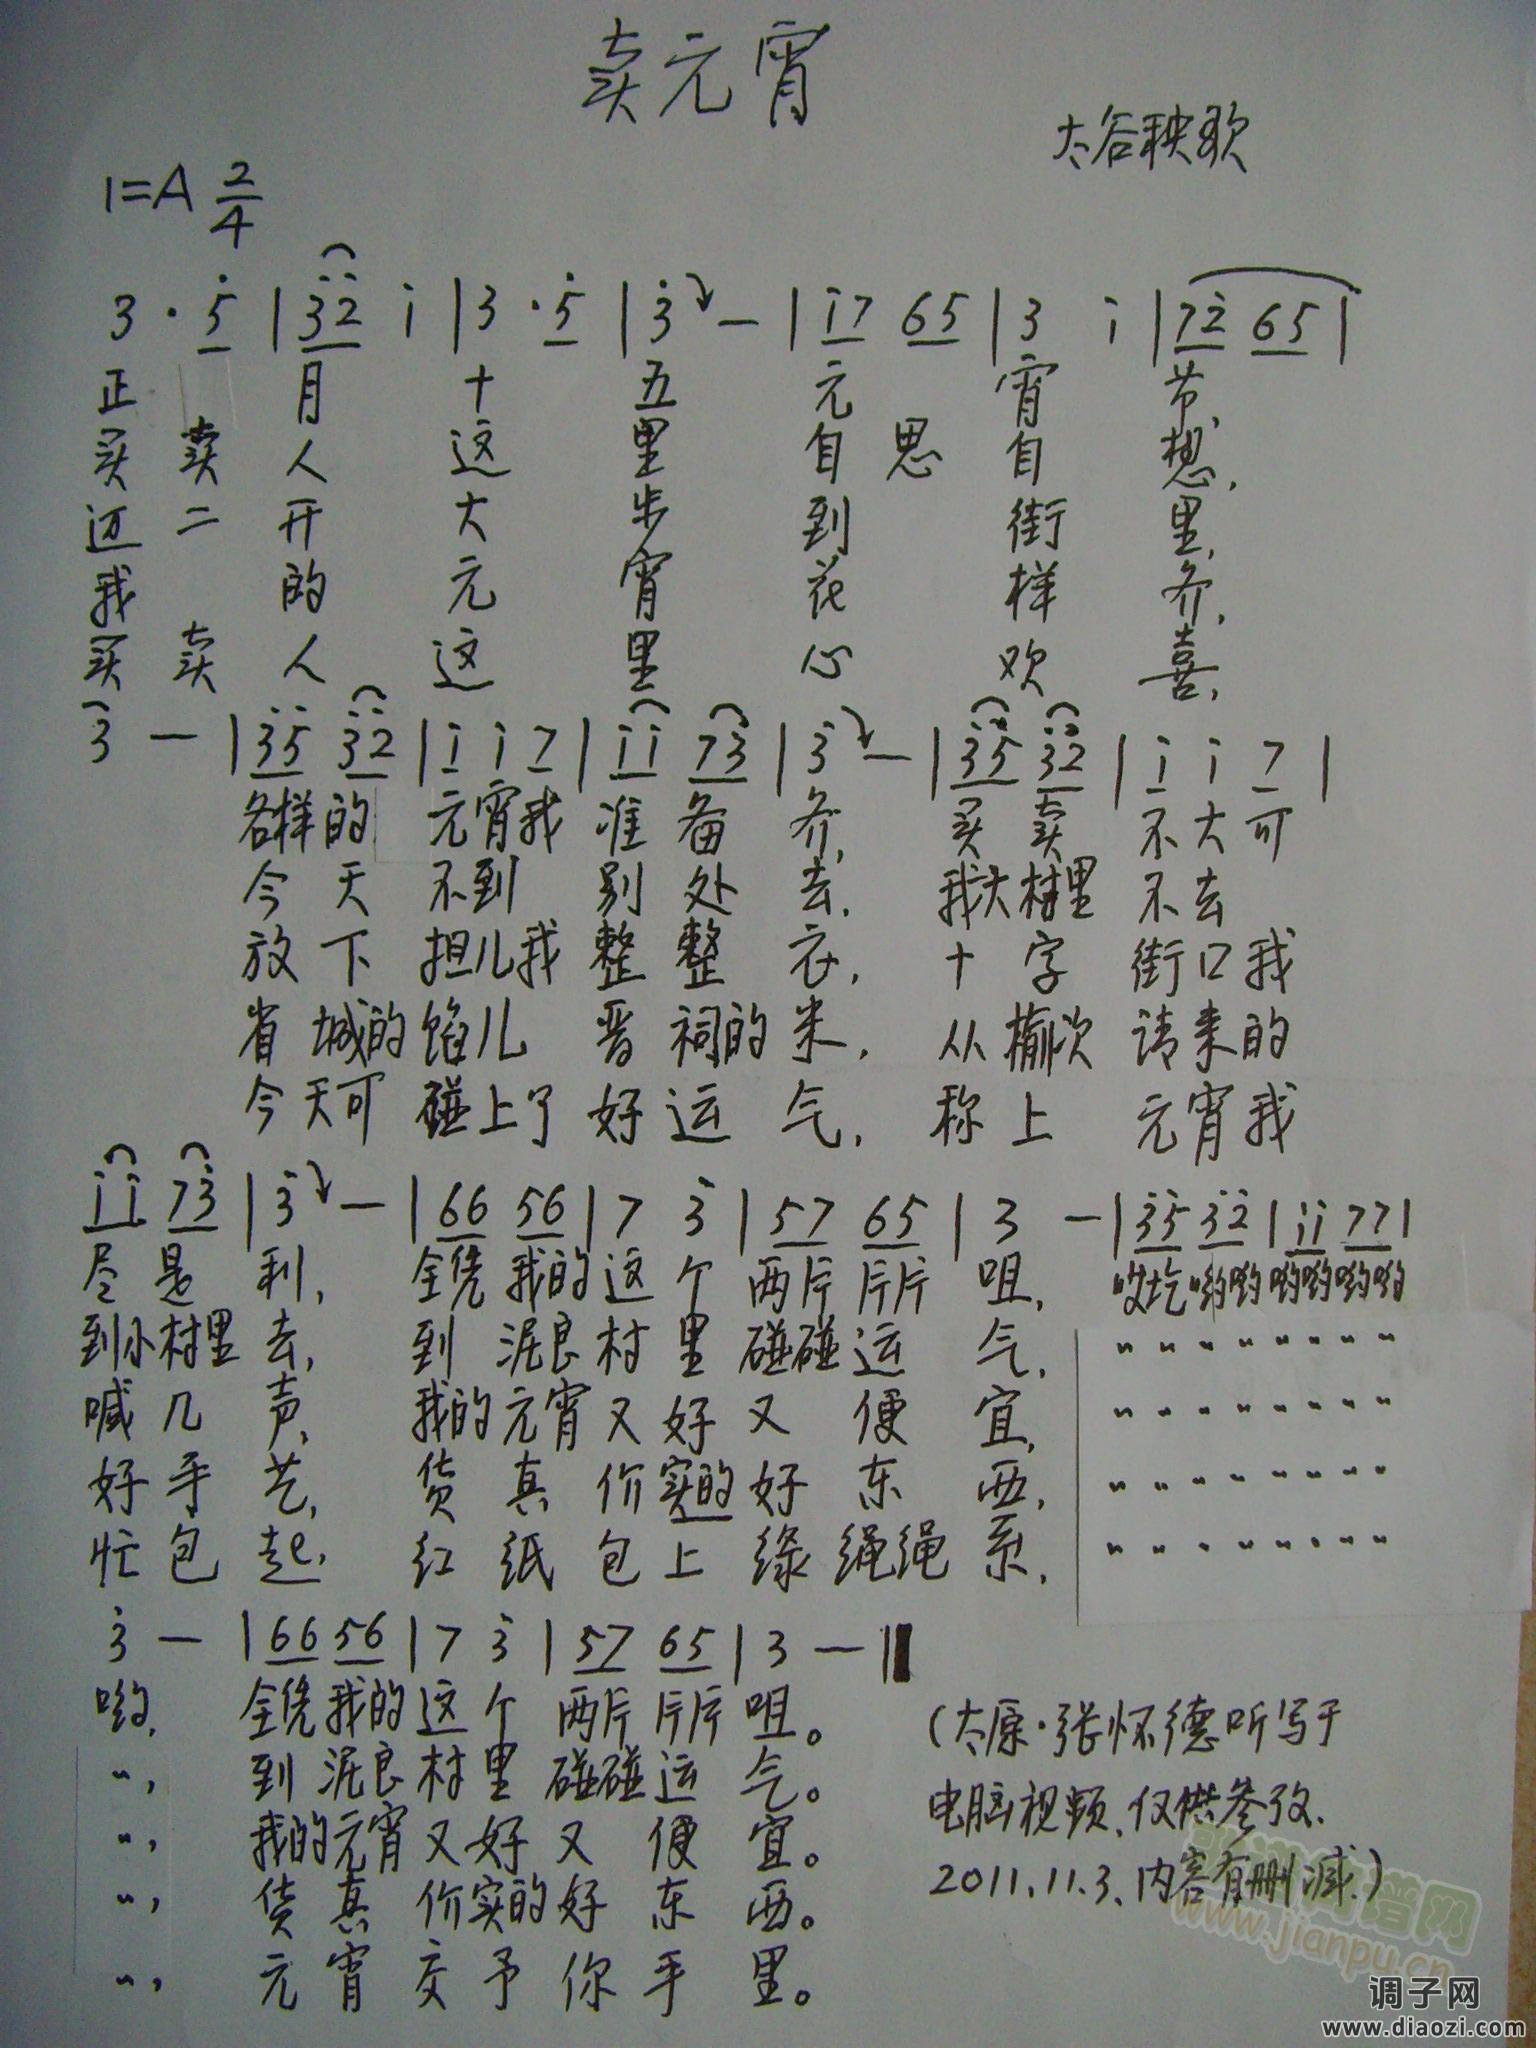 卖元宵
太谷秧歌
1=A 2/4
3·5̇ |3̇2̇ i |3·5̇ |3̇ – |i7 65 |3 i |72̇ 65 |
正 月 十 五 元 宵 节,
买 卖 人 这 里 自 思 自 想,
迈 二 开 大 步 到 街 里,
我 的 元 宵 花 样 齐,
买 卖 人 这 里 心 欢 喜,
3̇ – |3̇5̇ 3̇2̇ |i i 7 |i i 73̇ |3̇ – |3̇5̇ 3̇2̇ |i i 7 |
各样的 元宵我 准 备 齐, 买 卖 不大可
今 天 不到 别 处 去, 我大村里 不去
放 下 担儿我 整 整 衣, 十 字 街口我
省 城的 馅儿 晋 祠的 米, 从榆次 请来的
今 天可 碰上了 好 运 气, 称 上 元宵我
i i 73̇ |3̇ – |66 56 |7 3̇ |57 65 |3 – |3̇5̇ 3̇2̇ |i i 77 |
尽 是 利, 全凭 我的 这 个 两片 片片 咀, 哎圪哟哟 哟哟哟哟
到小村里 去, 到 泥良 村 里 碰碰 运 气, 〃〃〃〃〃〃〃〃
喊 几 声, 我的 元宵 又 好 又 便 宜, 〃〃〃〃〃〃〃〃
好 手 艺, 货 真 价 实的 好 东 西, 〃〃〃〃〃〃〃〃
忙 包 起, 红 纸 包 上 绿 绳绳 系, 〃〃〃〃〃〃〃〃
3̇ – |66 56 |7 3̇ |57 65 |3 – ‖
哟, 全凭我的 这 个 两片 片片 咀。
〃, 到 泥良 村 里 碰碰 运 气。
〃, 我的元宵 又 好 又 便 宜。
〃, 货 真 价实的 好 东 西。
〃, 元 宵 交 予 你 手 里。
(太原·张怀德听写于
电脑视频、仅供参考.
2011.11.3、内容有删减.)
www.jianpu.cn
调子网
www.diaozi.com